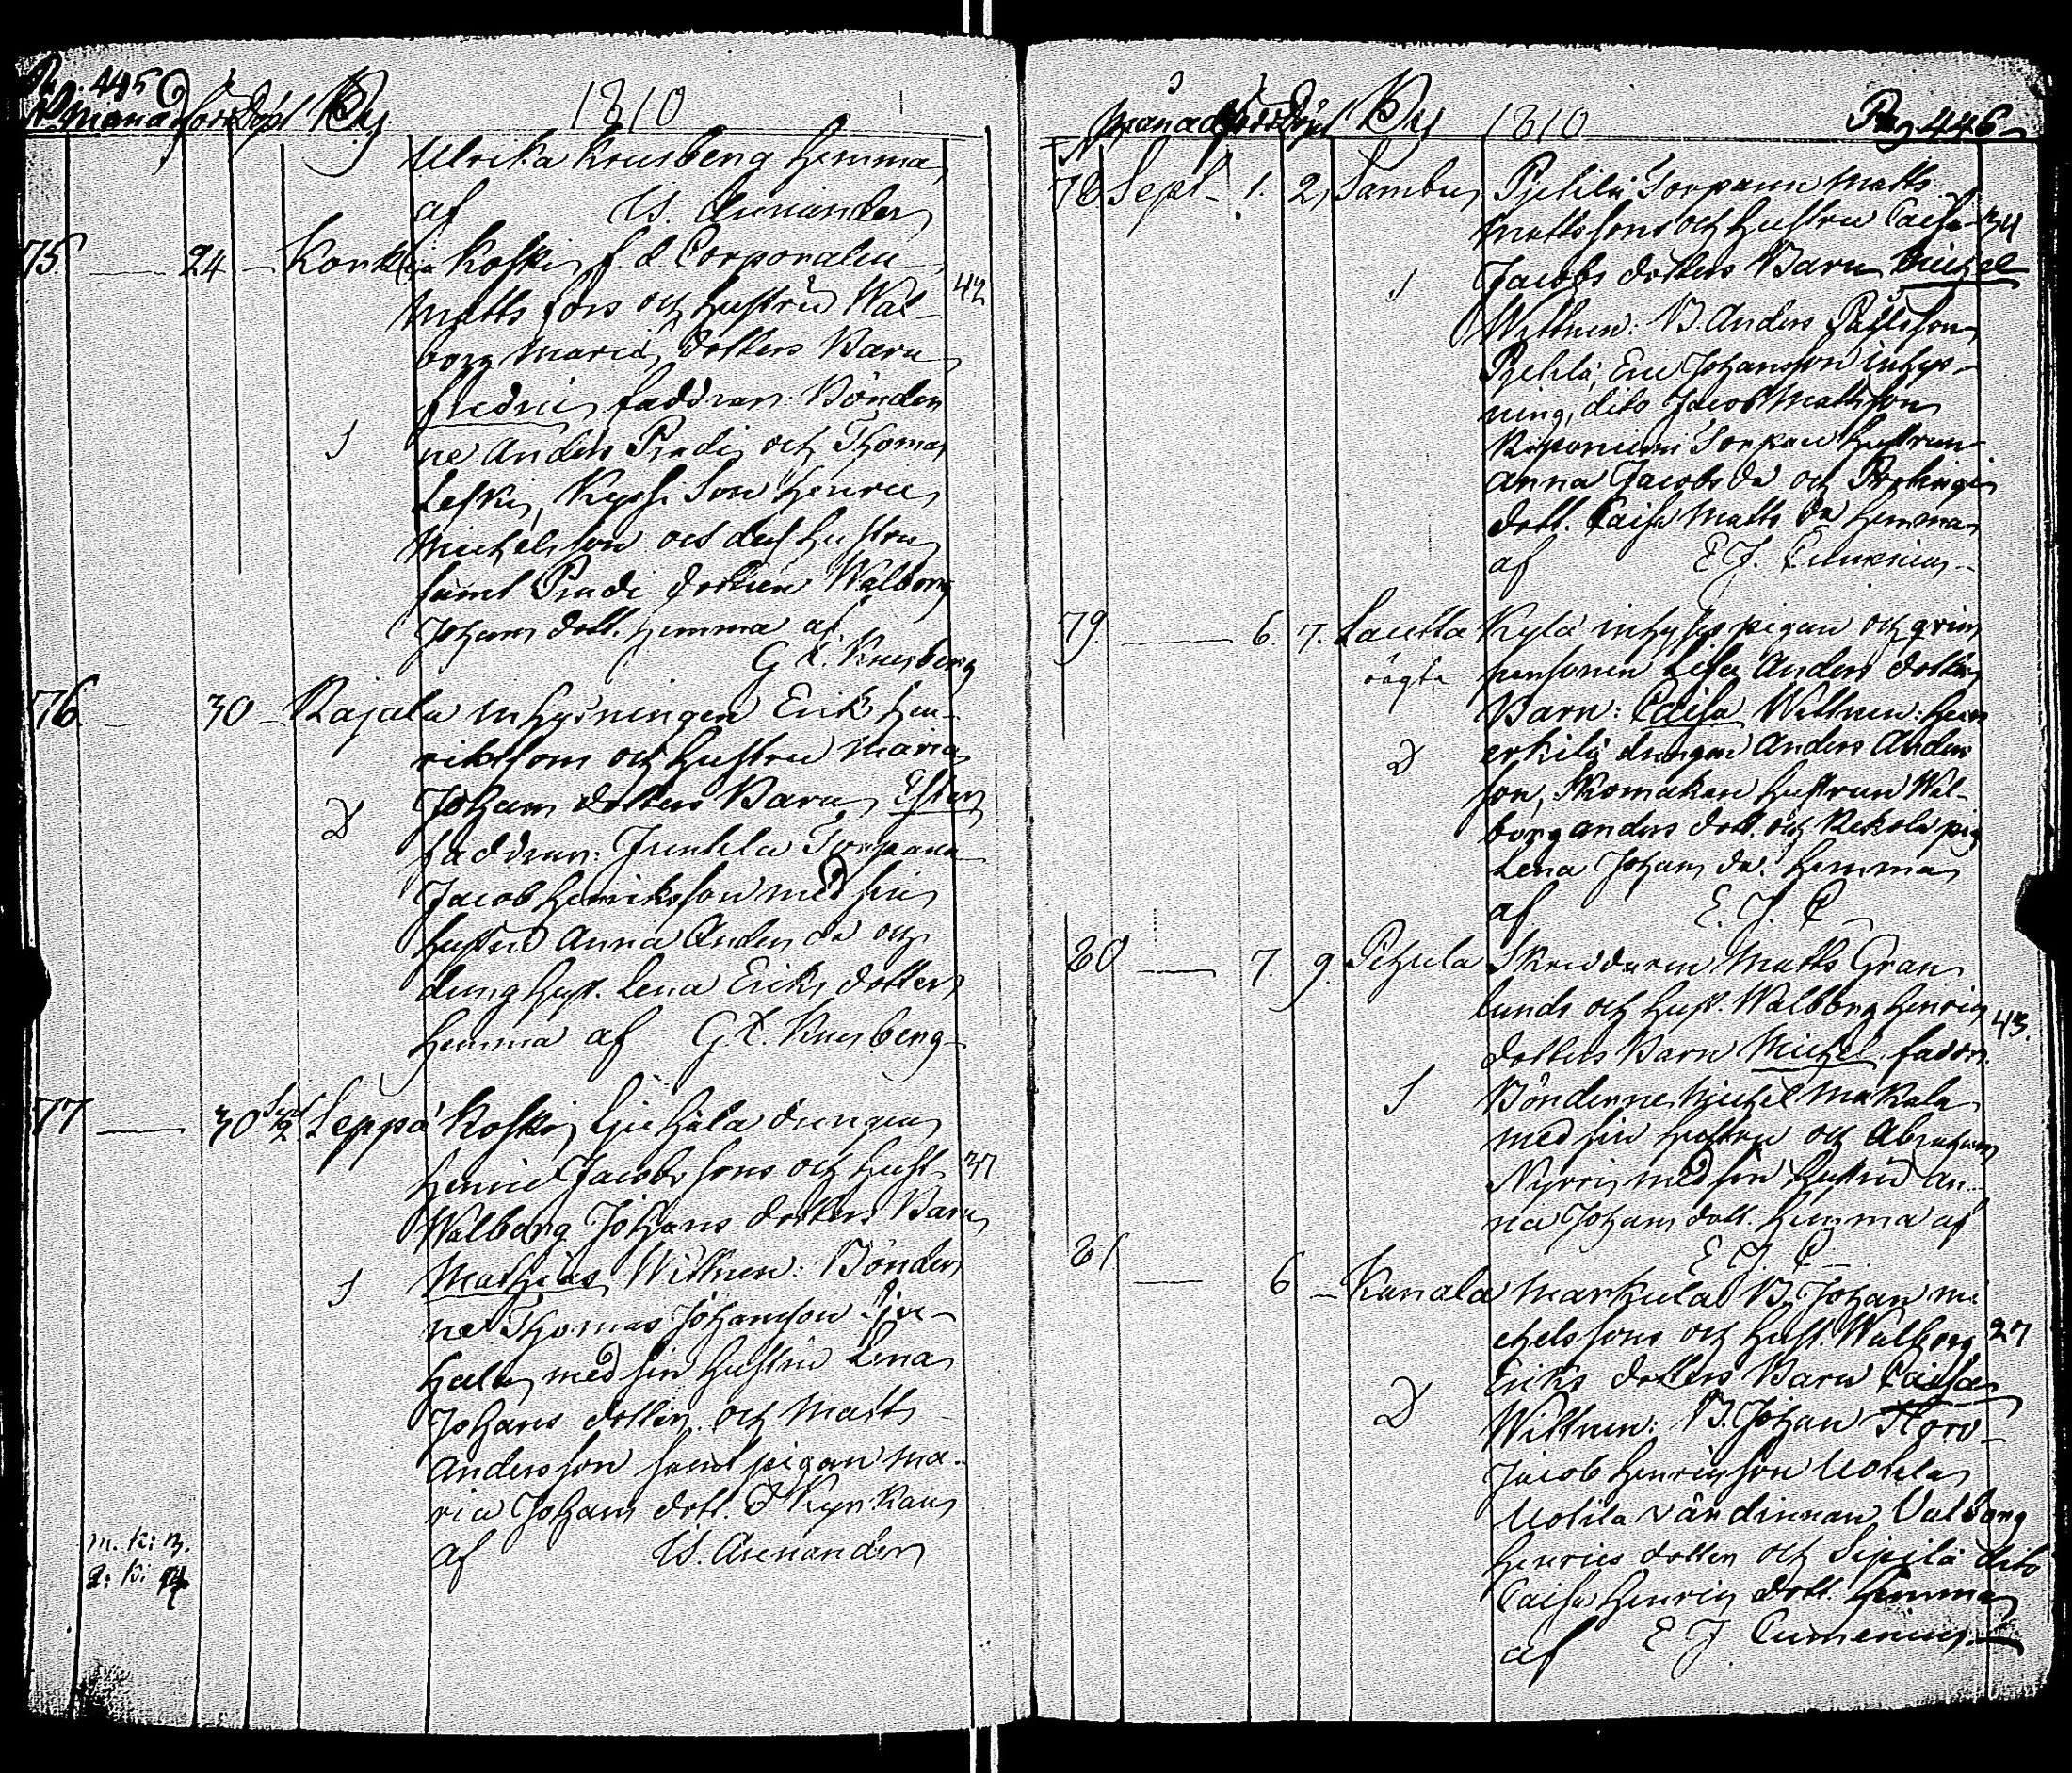 445
N Månad Föd Döpt By 1810
Ulrika Krusberg hemma
af U. Arenander
75. 24 Konkka Koski f. d Corporalen
Matts fors och hustru Wal- 42
borg Maria dotters Barn
Fredric, faddran Bönder
ne Anders Pradi och Thomas
Leski, Son Henric
Michelsson och des hustru
samt Pradi dottren Walborg
Johans dott. hemma af
G. Krusberg
76. 30 Rajala inhysningen Erik Hen-
rikssons och hustru Maria
D Johans dotters Barn, Ester
faddran: Junkkila Torparen
Jacob Henriksson med sin
hustru Anna Anders da och
dräng hust. Lena Eriks dotter
hemma af G. Krusberg
77 30 Sept 2. Leppä Koski, drängen
Henric Jacobssons och hust 37
Walborg Johans dotters Barn
S Mathias, Wittnen: Bönder
ne Thomas Johansson
med sin hustru Lena
Johans dotter och Matts
Andersson samt pigan Ma-
ria Johans dott. I Kyrkan
af U. Arenander
m. k: 3.
q: k: 4
Månad Föd Döpt By 1810 Pag 446
78. Sept 1. 2, Sambu, Torparen Matts
Mattssons och hustru Caisa 34
S Jacobs dotters Barn Michel
Wittnen: B. Anders
Eric Johansson inhys-
ning, dito Jacob Mattsson
Torpare hustrun
Anna Jacobs da och
dott. Caisa Matts da hemma
af E J. Cumenius
79. 6. 7. Lautta Kylä inhyses pigan och
oägta personen Lisa Anders dotters
Barn: Caisa, Wittnen:
D erkilä drängen Anders Anders
son, Skomakare hustrun Wal-
borg Anders dott. och Kekola pig
Lena Johans da. hemma
af E. J. C
80 7. 9. Pehula Skreddaren Matts Gran
lunds och hust. Walborg Henric 43.
dotters Barn Michel, faddr.
S Bönderne Michel Makala
med sin hustru och Abraham
Nyrri, med sin hustru An-
na Johans dott. hemma af
E J. C
81 6 Kanala Markula B. Johan Mi
chelssons och hust. Walborg 27
Eriks dotters Barn Caisa
D Wittnen: B. Johan
Jacob Henricsson Uotila
Uotila värdinnan Valborg
Henrics dotter och Sipilä dito
Caisa Henrics dott. hemma
af E J Cumenius